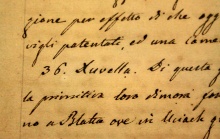 gione per effetto di che agg
vigli patentati, ed una came
36. Xuvella. Di questa f
la primitiva loro dimora fon
no a Blatta ove in Uciach g